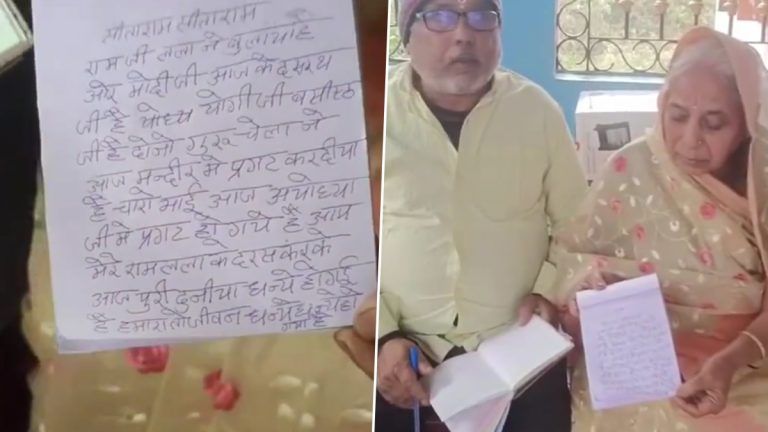 सीताराम सीताराम
राम जी लला ने बुलाया है
और मोदी जी आज के दसरथ
जी है योध्य योगी जी वसीष्ठ
जी है दोनो गुरू चेला ने
आज मन्दीर मे प्रगट कर दीया
है चारो भाई आज अयोध्या
जी मे प्रगट हो गये है आप
मेरे राम लला के दरस करके
आज पुरी दुनीया धन्ये हो गई
है हमारा तो जीवन धन्ये हो
गया है